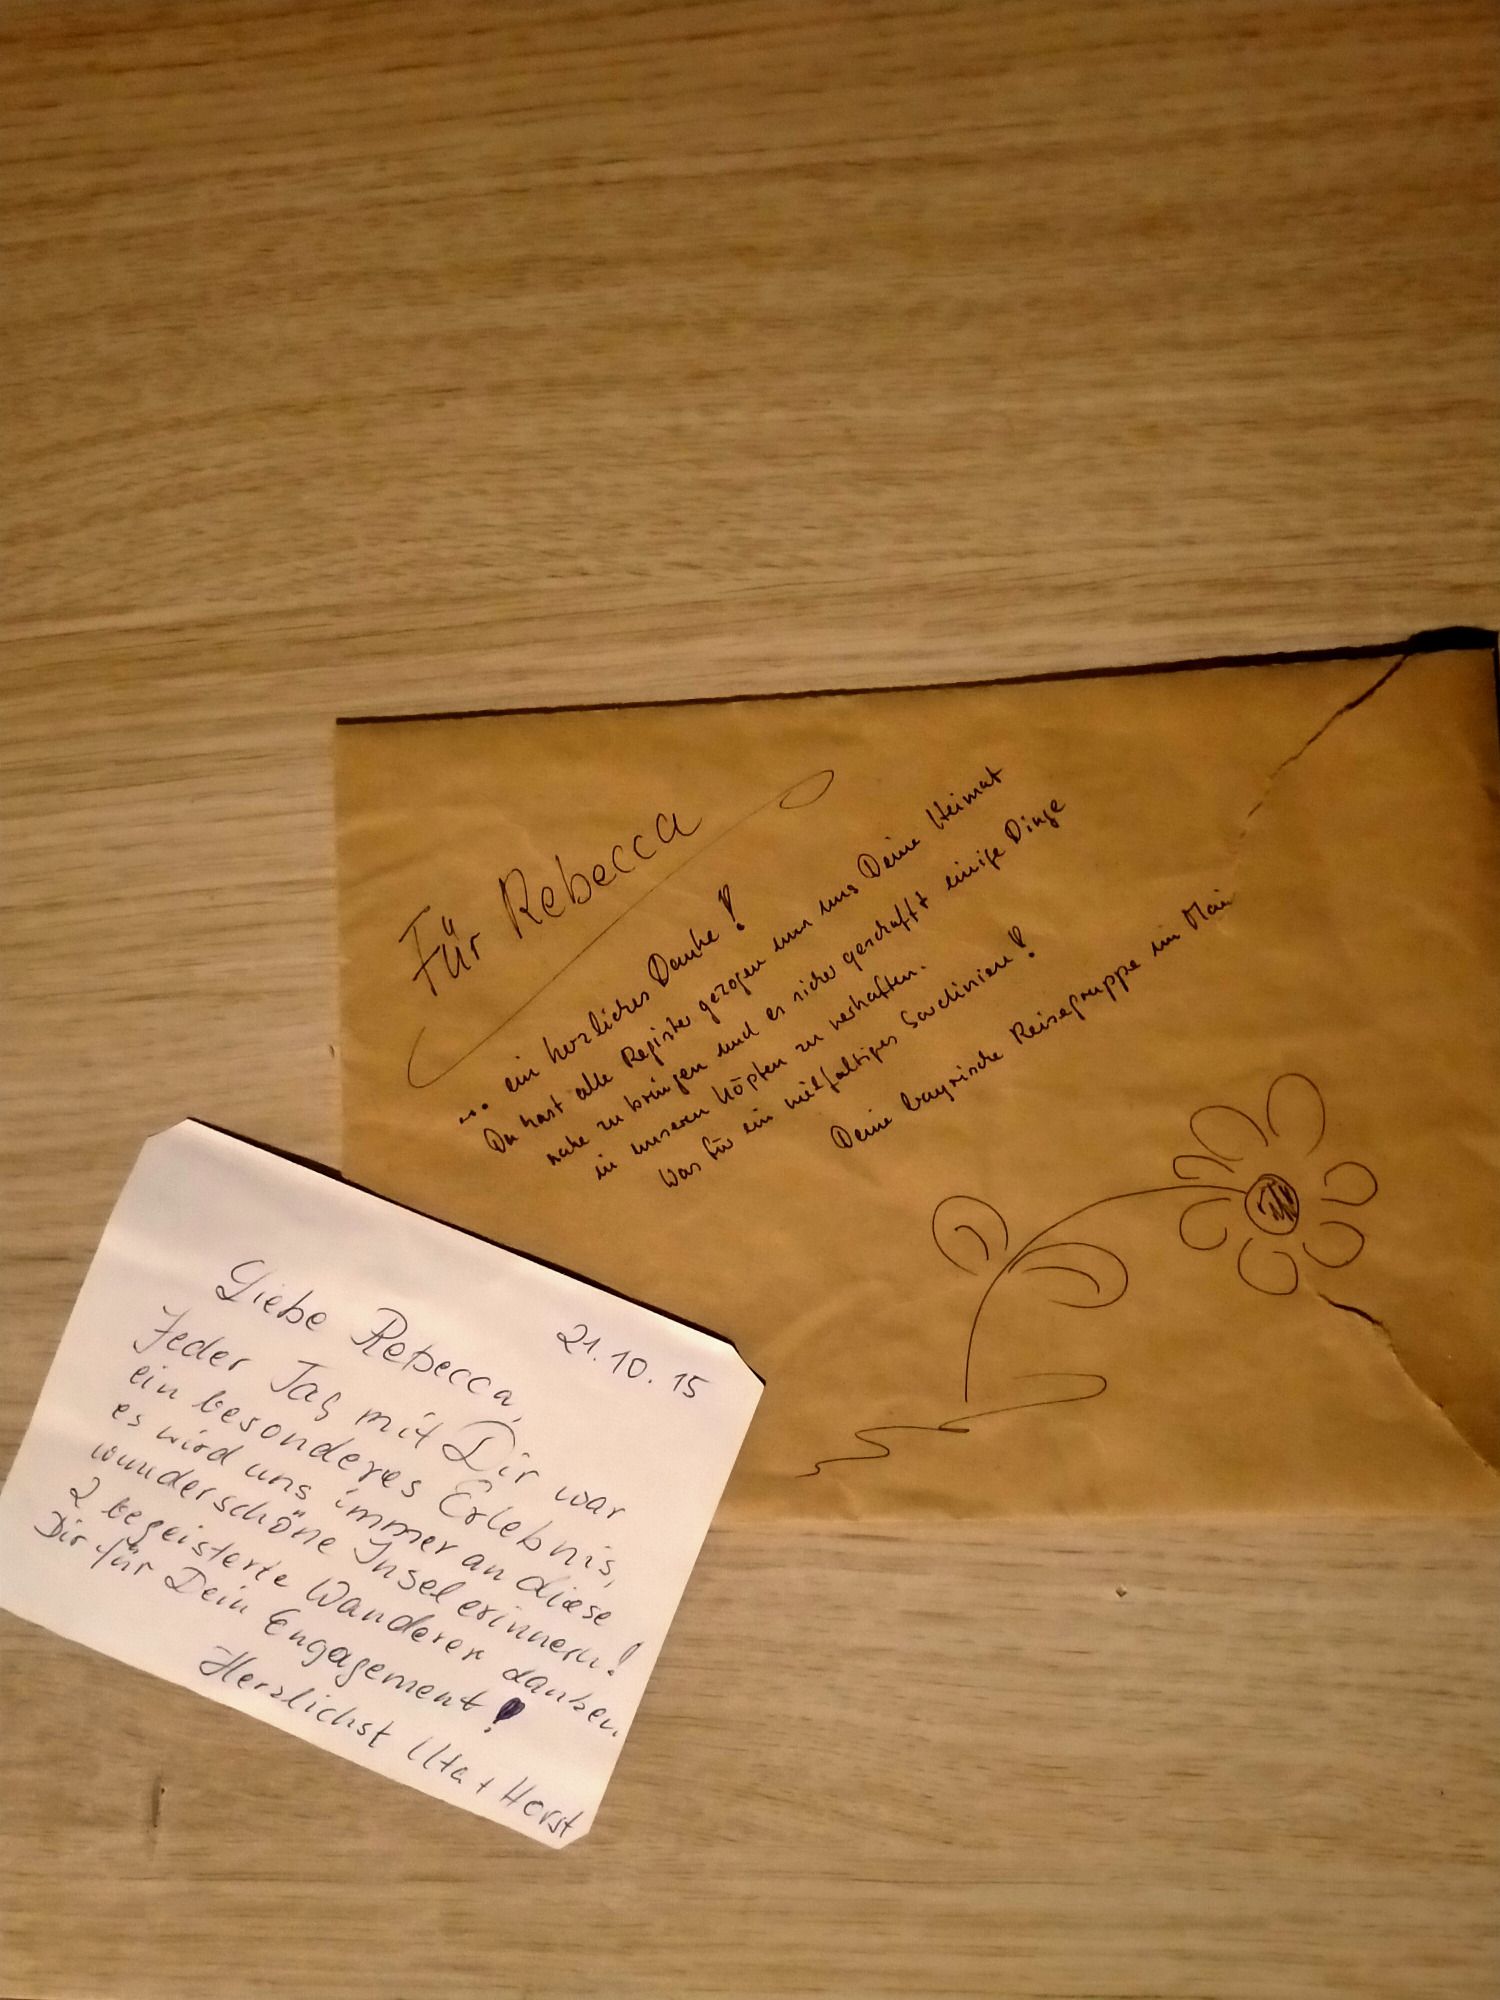 Für Rebecca
... ein herzliches Danke!
Du hast alle Register gezogen um uns Deine Heimat
nahe zu bringen und es sicher geschafft einige Dinge
in unseren Köpfen zu verhaften.
Was für ein vielfältiges Sardinien!
Deine bayrische Reisegruppe im Mai
21.10.15
Liebe Rebecca,
Jeder Tag mit Dir war
ein besonderes Erlebnis,
es wird uns immer an diese
wunderschöne Insel erinnern!
2 begeisterte Wanderer danken
Dir für Dein Engagement!
Herzlichst Uta + Horst